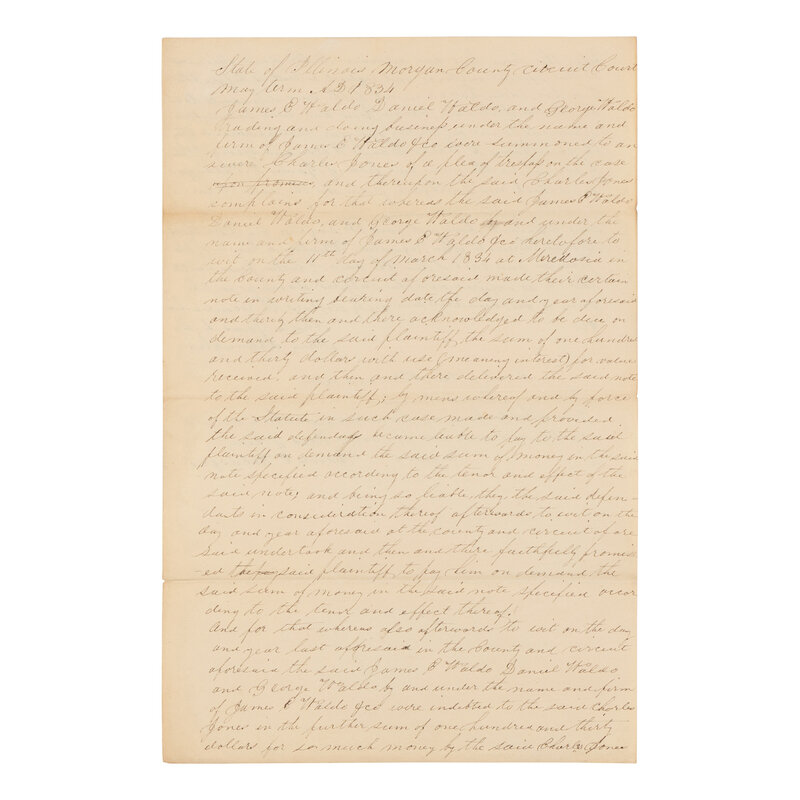 State of Illinois Morgan County circuit Court
May term A D 1834
James E Waldo Daniel Waldo, and George Waldo
trading and doing business under the name and
firm of James E Waldo & co were summoned to an
swere Charles Jones of a plea of trespass on the case
upon promises, and thereupon the said Charles Jones
complains for that whereas the said James E Waldo
Daniel Waldo, and George Waldo by and under the
name and firm of James E Waldo & co heretofore to
wit on the 11th day of March 1834 at Meredosia in
the county and circuit aforesaid made their certain
note in writing bearing date the day and year aforesaid
and thereby then and there acknowledged to be due on
demand to the said plaintiff the sum of one hundred
and thirty dollars with use (meaning interest) for value
received, and then and there delivered the said note
to the said plaintiff; by mens whereof and by force
of the Statute in such case made and provided
the said defendats became liable to pay to the said
plaintiff on demand the said sum of money in the said
note specified according to the tenor and effect of the
said note, and being so liable they the said defen-
dants in consideration thereof afterwards to wit on the
day and year aforesaid at the county and circuit afore
said undertook and then and there faithfully promis
ed the said plaintiff to pay him on demand the
said sum of money in the said note specified accor
ding to the tenor and effect thereof.
And for that whereas also afterwards to wit on the day
and year last aforesaid in the County and circuit
aforesaid the said James E Waldo Daniel Waldo
and George Waldo by and under the name and firm
of James E Waldo & co were indebted to the said Charles
Jones in the further sum of one hundred and thirty
dollars for so much money by the said Charles Jones